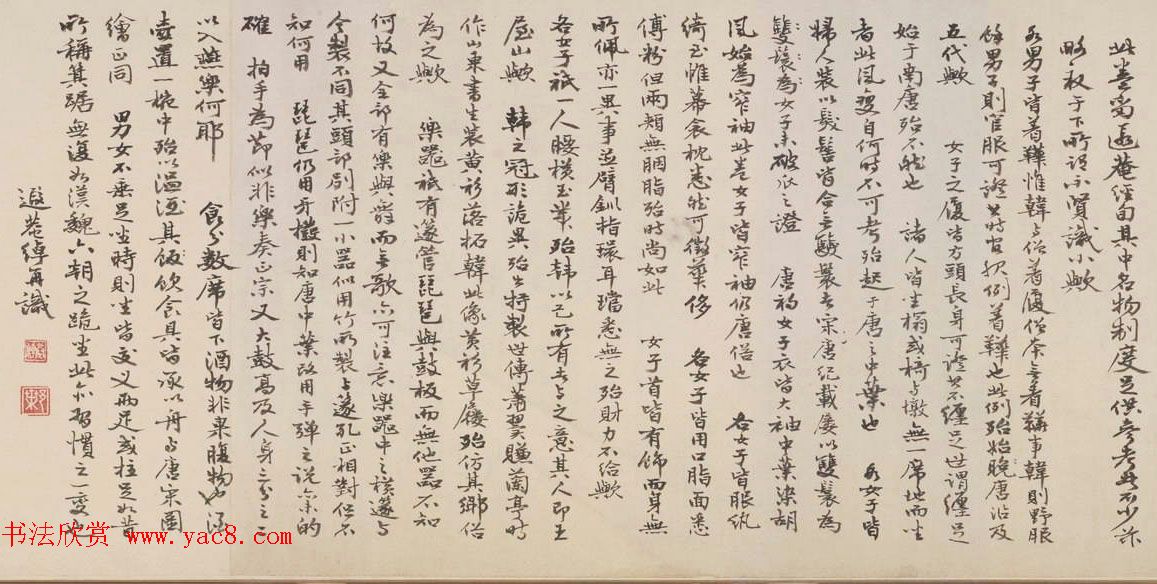 此卷曾遐庵經自其中名物制度足供參考者不少茲
略放于下所謂不賢識小歟
各男子皆着鞾惟韓與俗着履僧本無着鞾事韓則野服
餘男子則官服可證當時官服例着鞾也此例殆始晚唐沿及
五代歟 女子之履皆方頭長身可證其不纏足世謂纏足
始于南唐殆不然也 諸人皆坐榻或椅與墩無一席地而坐
者此風變自何時不可考殆起于唐之中葉也 各女子皆
婦人裝以髮髻皆合無鬟裝者宋唐紀載屢以雙鬟為
雙鬟為女子未破瓜之證 唐初女子衣皆大袖中葉染胡
風始為窄袖此卷女子皆窄袖仍唐俗也 各女子皆服紈
綺至帷幕衾枕悉然可徵美侈 各女子皆用口脂面悉
傅粉但兩頰無胭脂殆時尚如此 女子首皆有飾而身無
所佩亦一異事並臂釧指環耳璫悉無之殆財力不給歟
各女子祇一人腰橫玉帶殆韓以己所有者與之意其人即王
屋山歟 韓之冠形詭異殆出特製世傳蕭翼賺蘭亭時
作山東書生裝黃衫落拓韓此像黃衫草履殆仿其鄉俗
為之歟 樂器祇有篴管琵琶與鼓板而無他器不知
何故又全部有樂與舞而無歌亦可注意樂器中之橫篴與
今製不同其頭部別附一小器似用竹所製與篴孔正相對但不
知何用 琵琶仍用牙撥則知唐中葉改用手彈之說亦不的
確 拍手為節似非樂奏正宗又大鼓高及人身三分之二
以入燕樂何耶 食與數席皆下酒物非果腹物也酒
壺置一椀中殆以溫酒其飯飲食具皆承以舟與唐宋圖
繪正同 男女不垂足坐時則坐皆交叉兩足或拄足如背
所稱箕踞無復如漢魏六朝之跪坐此亦習慣之一變也
遐菴綽再識
书法欣赏 www.yac8.com